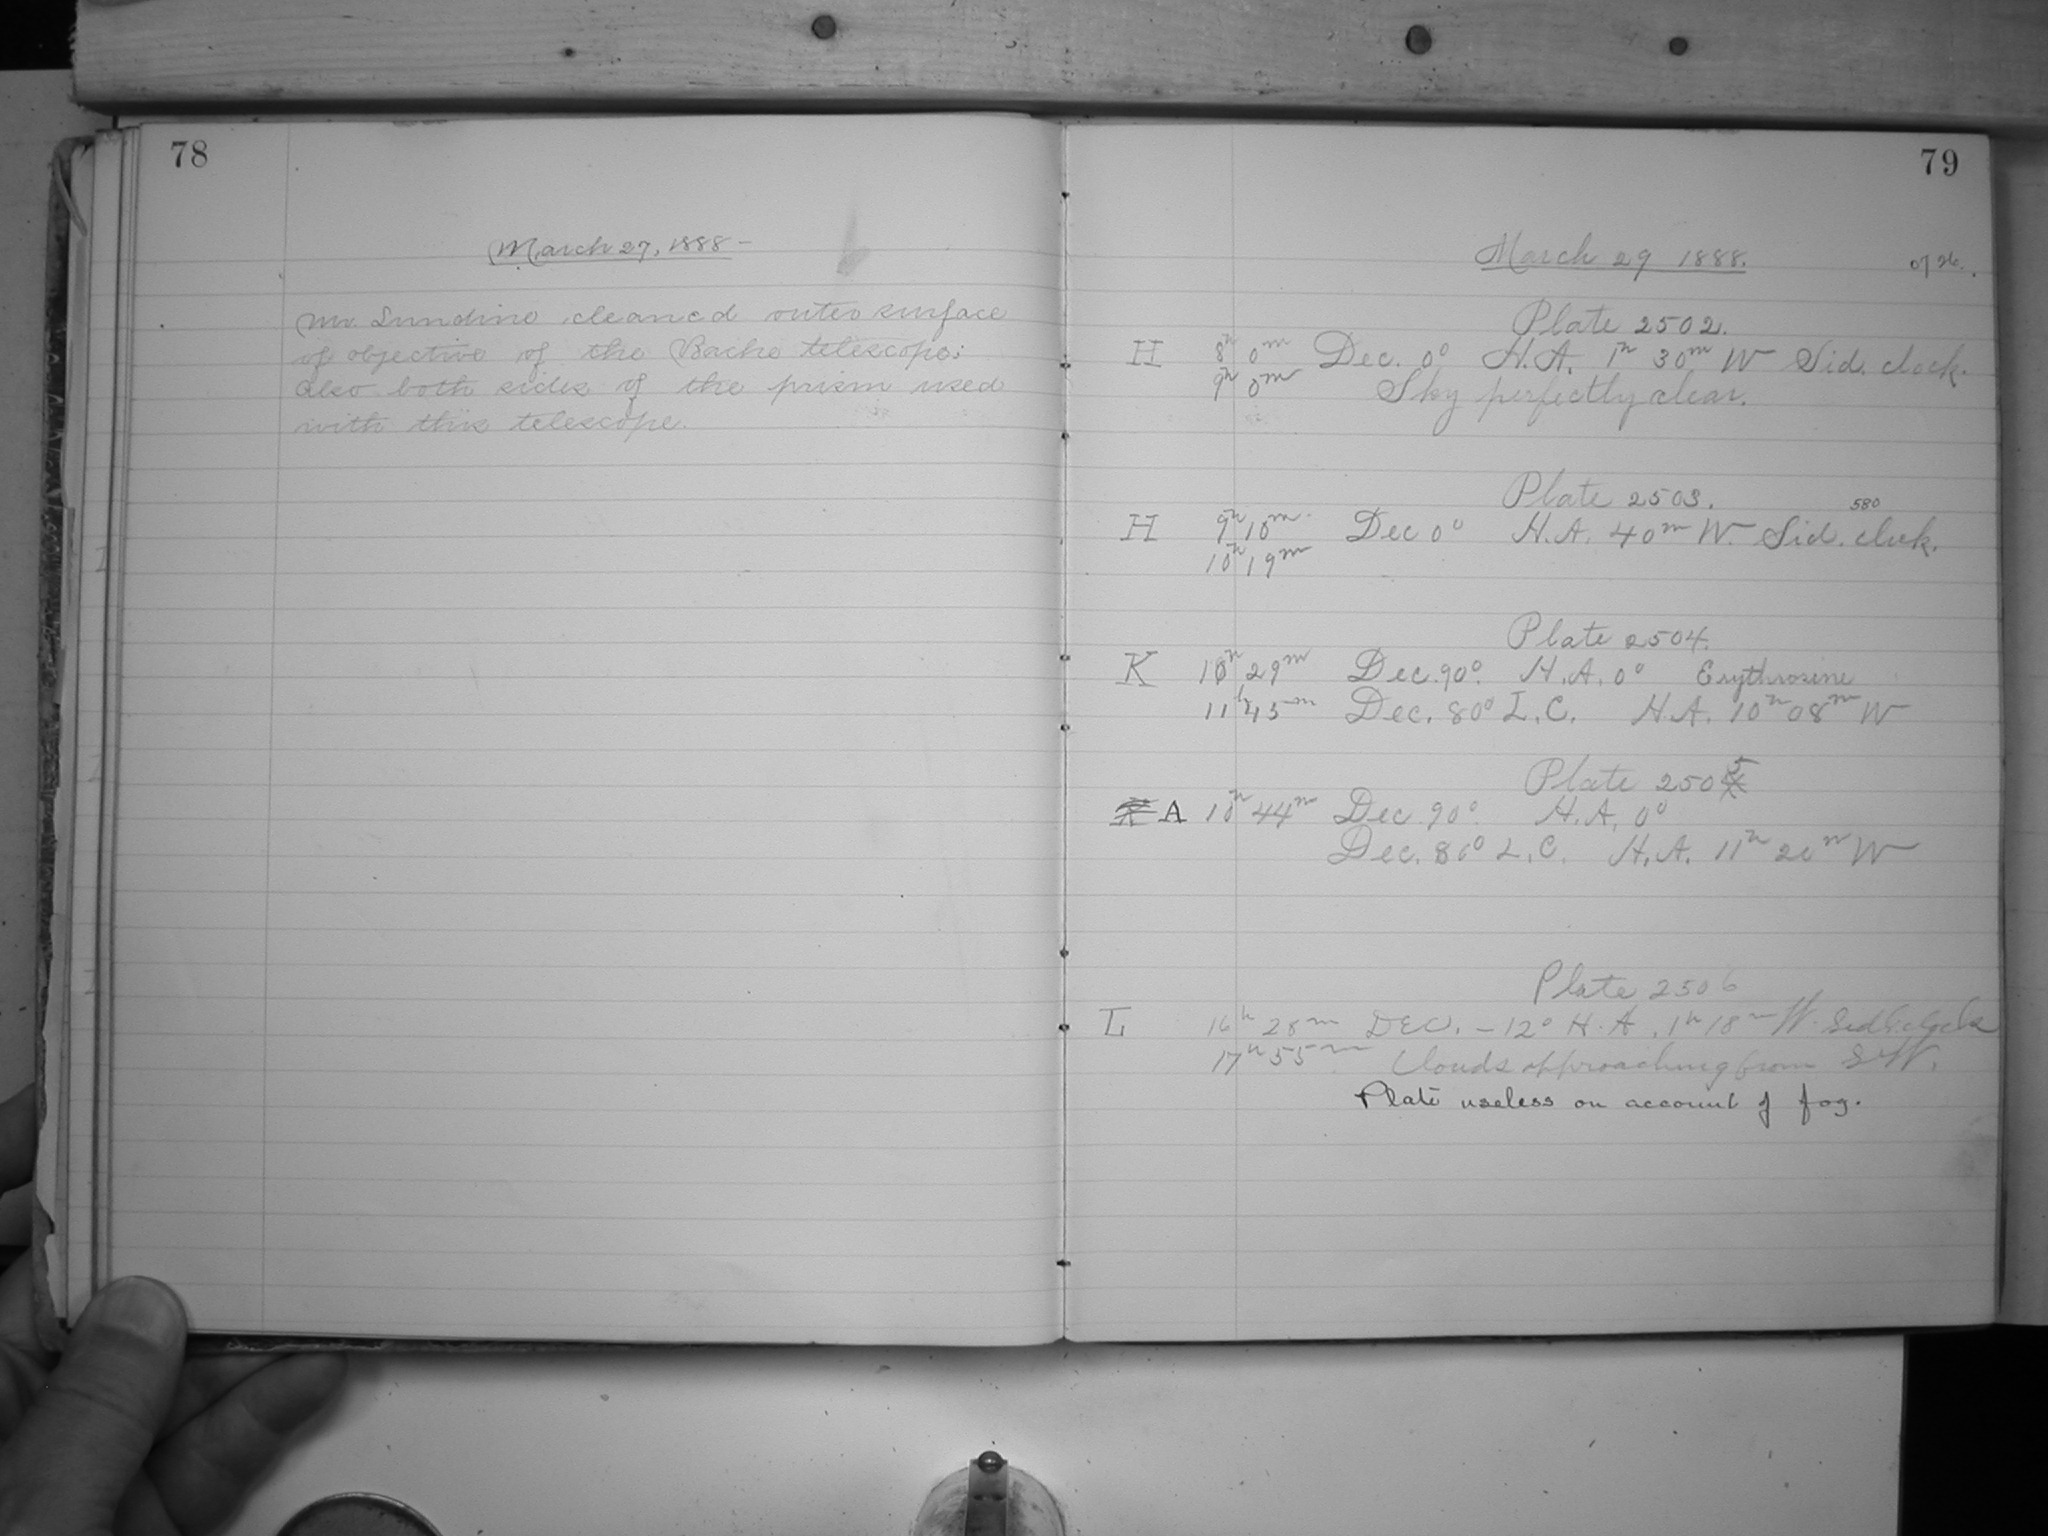 78
March 27, 1888 –
Mr. Lundino cleaned outer surface
of objective of the Bache telescope;
also both sides of the prism used
with this telescope.
79
March 29 1888.
Plate 2502.
H 8h 0m Dec. 0° H.A. 1h 30m W Sid. clock.
9h 0m Sky perfectly clear.
Plate 2503.
580
H 9h 10m Dec 0° H.A. 40m W. Sid. clock.
10h 19m
Plate 2504.
K 10h 29m Dec. 90° H.A. 0° Erythrosine
11h 45m Dec. 80° L.C. H.A. 10h 08m W
Plate 2505
A 10h 44m Dec 90° H.A. 0°
Dec. 80° L.C. H.A. 11h 20m W
Plate 2506
L 16h 28m DEC. –12° H.A. 1h 18m W.
17h 55m Clouds approaching from SW.
Plate useless on account of fog.